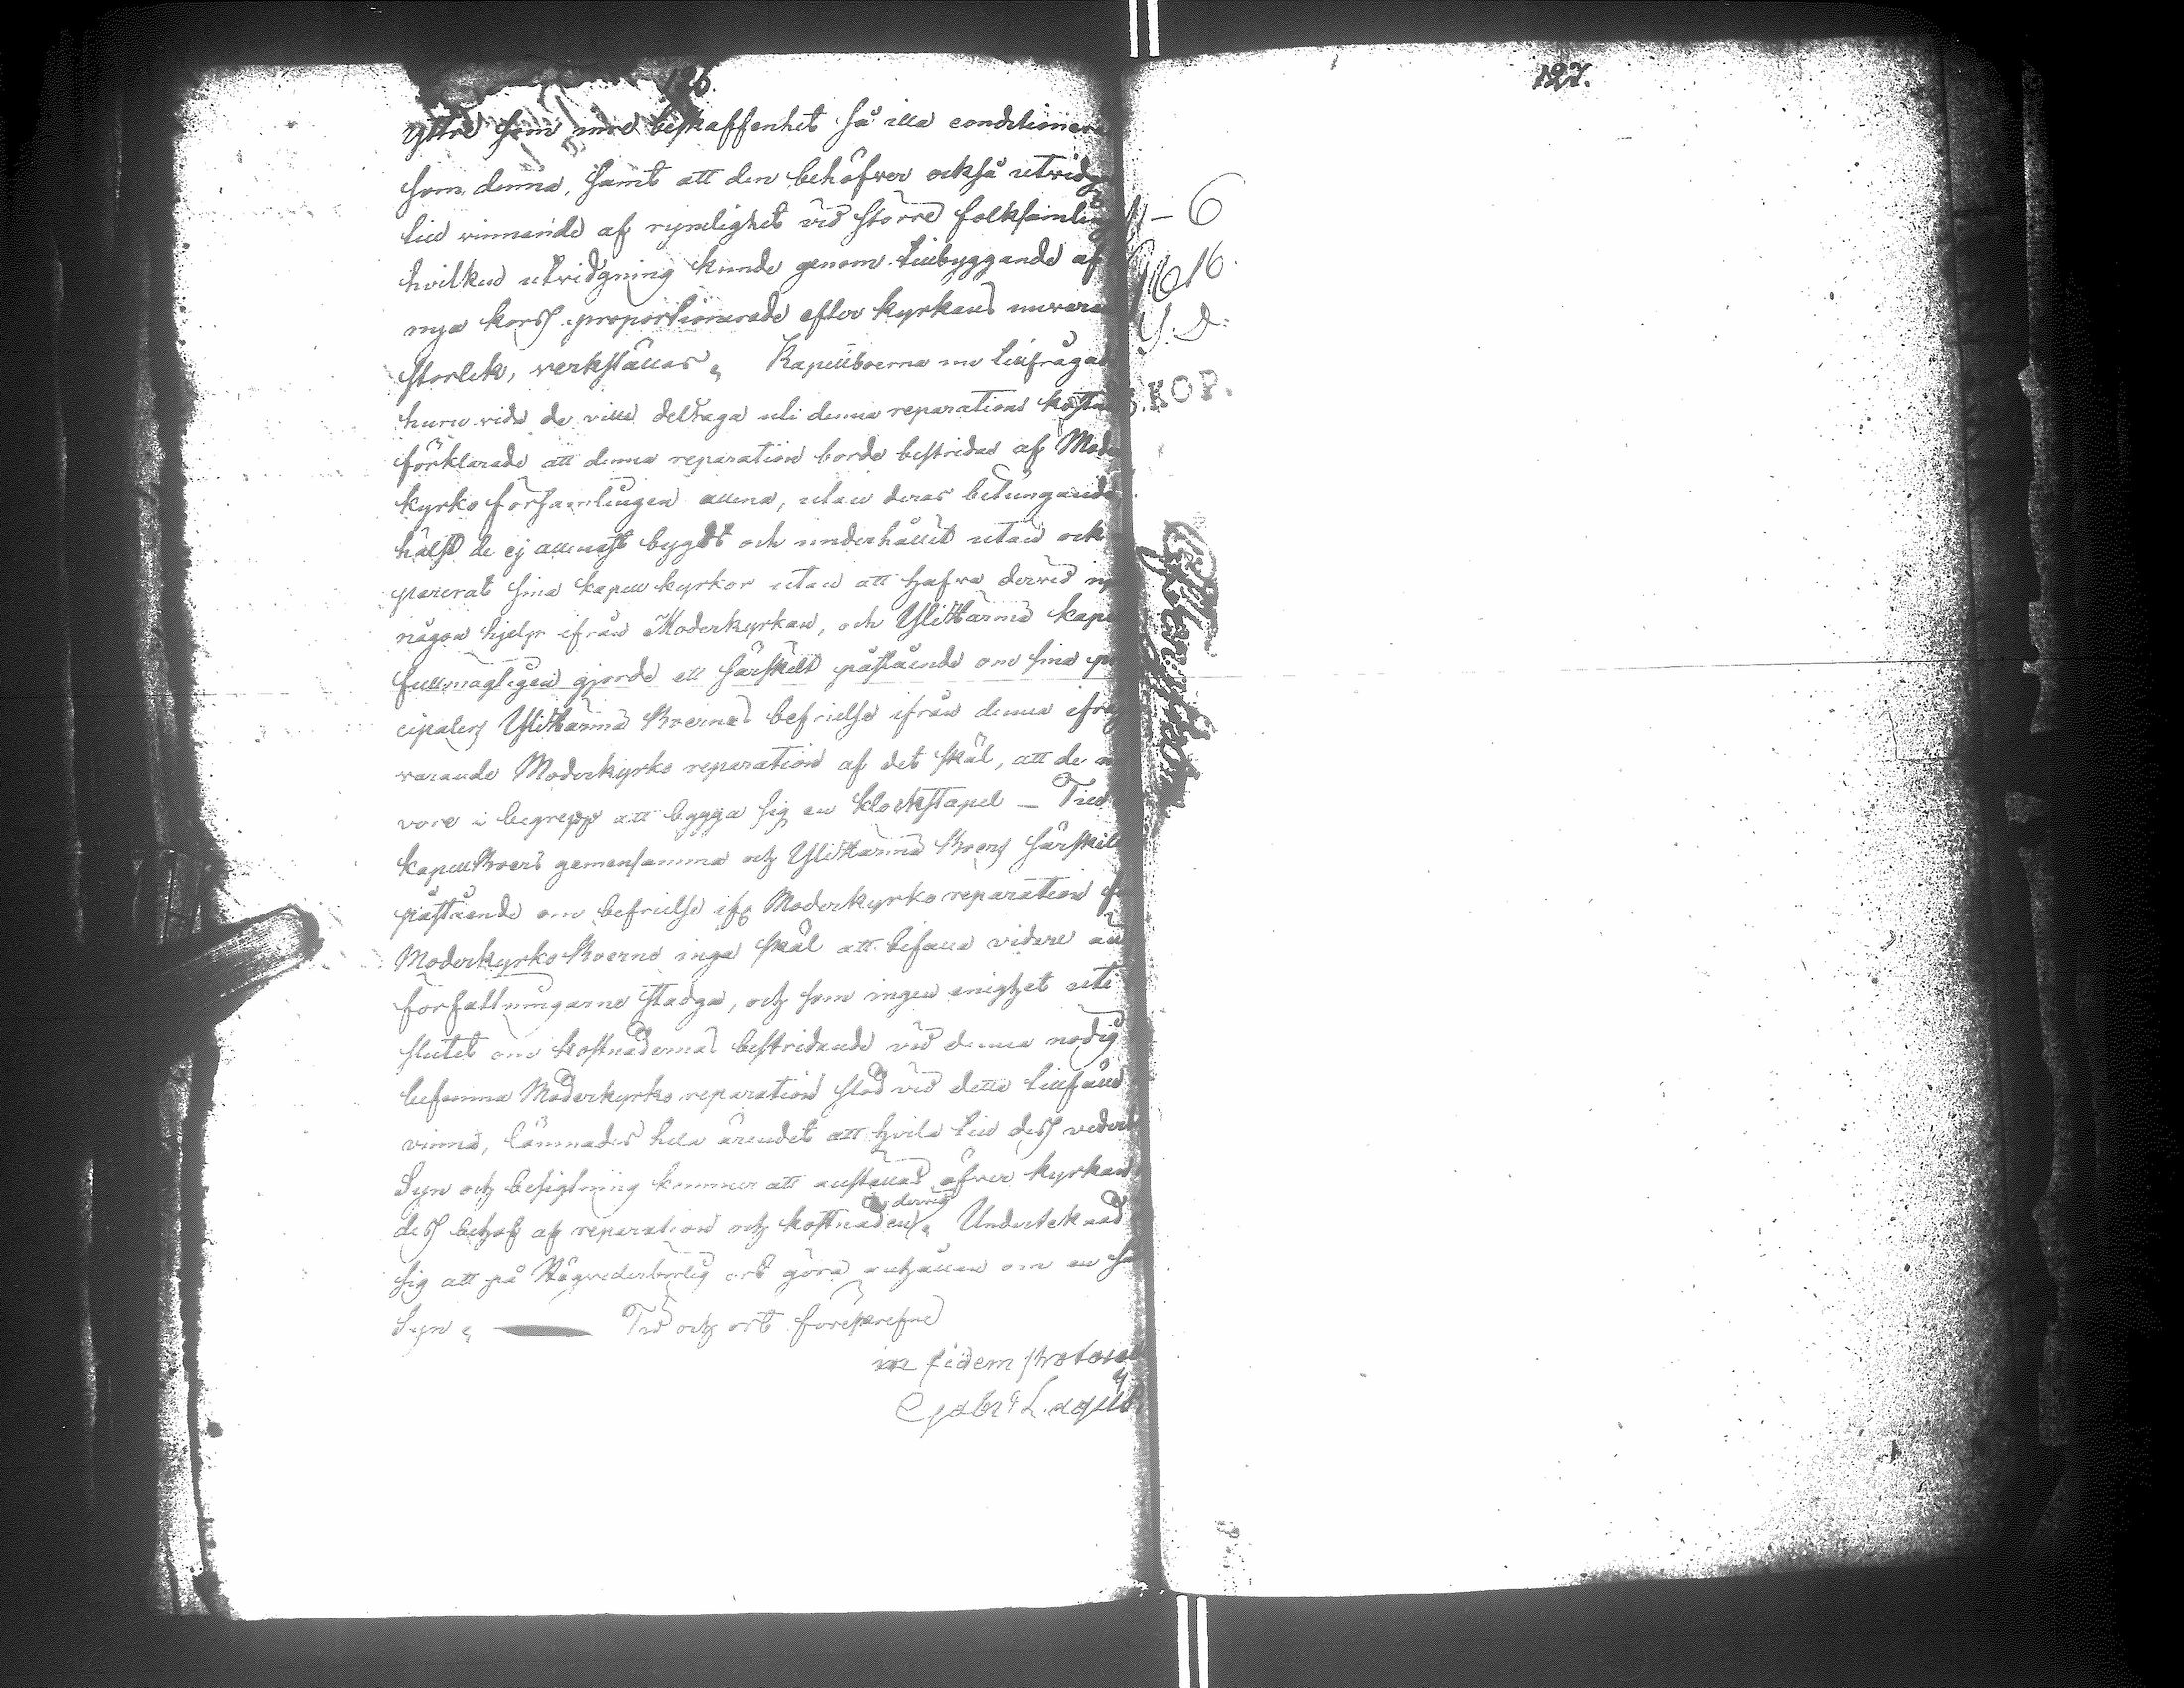 126.
yttre som inre beskaffenhet så illa conditionera
som denna, samt att den behöfver också utvidga
till vinnande af rymlighet vid större folksamling
hvilken utvidgning kunde genom tillbyggande af
nya korss proportionerade efter kyrkans nuvara
storlek, verkställas, Kapellboerna nu tillfrågade
huru vida de ville deltaga uti denna reparations kostna
förklarade att denna reparation borde bestridas af Mode
kyrko församlingen allena, utan deras betungande
hälst de ej allenast bygdt och underhållit utan ock
parerat sina kapell kyrkor utan att hafva dervid
någon hjelp ifrån Moderkyrkan, och Ylihärmä kape
fullmägtigen gjorde ett särskilt påstående om sina
cipalers Ylihärmä Boernas befrielse ifrån denna ifråg
varande Moderkyrko reparation af det skäl, att de
vore i begrepp att bygga sig en klockstapel – Till
kapellboers gemensamma och Ylihärmä Boers särskilt
påstående om befrielse ifr Moderkyrko reparation
Moderkyrko Boerne inga skäl att bifalla vidare än
författningarne stadga, och som ingen enighet uti
slutet om kostnadernas bestridande vid denna nödig
befunna Moderkyrko reparation stod vid detta tillfälle
vinna, lämnades hela ärendet att hvila till dess vederb
Syn och besigtning kommer att anställas öfver kyrkan
dervid
dess behof af reparation och kostnaden, Undertecknad
sig att på Högvederbörlig ort göra anhållan om en så
Syn, Tid och ort föreskrefne
in fidem Protocoll
Gabr: Lagus
127.
– 6
1616.
Y. D.
KOP.